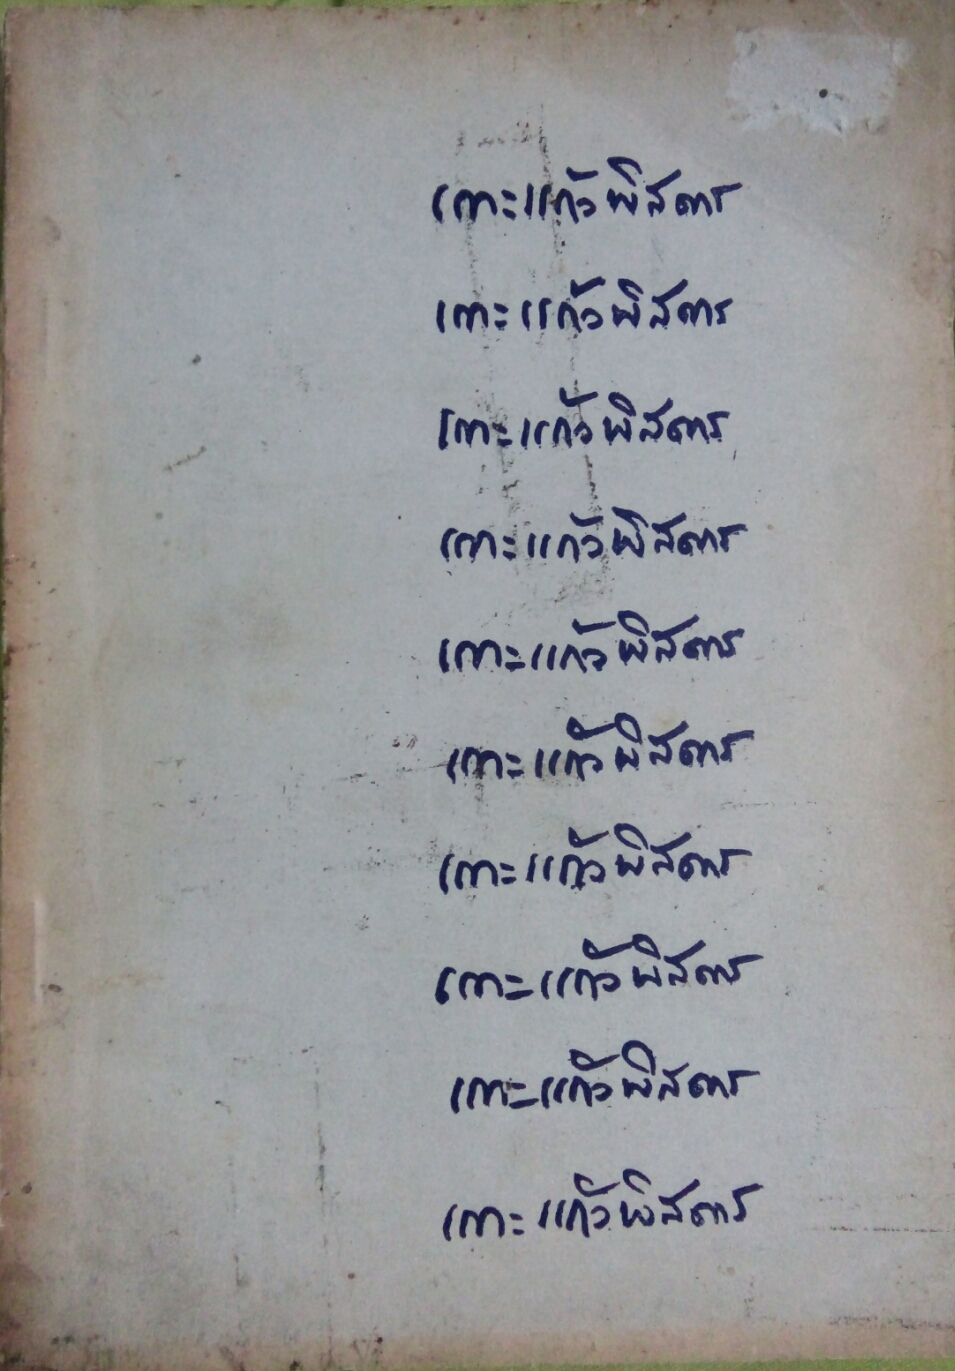 เกาะแก้วพิสดาร
เกาะแก้วพิสดาร
เกาะแก้วพิสดาร
เกาะแก้วพิสดาร
เกาะแก้วพิสดาร
เกาะแก้วพิสดาร
เกาะแก้วพิสดาร
เกาะแก้วพิสดาร
เกาะแก้วพิสดาร
เกาะแก้วพิสดาร